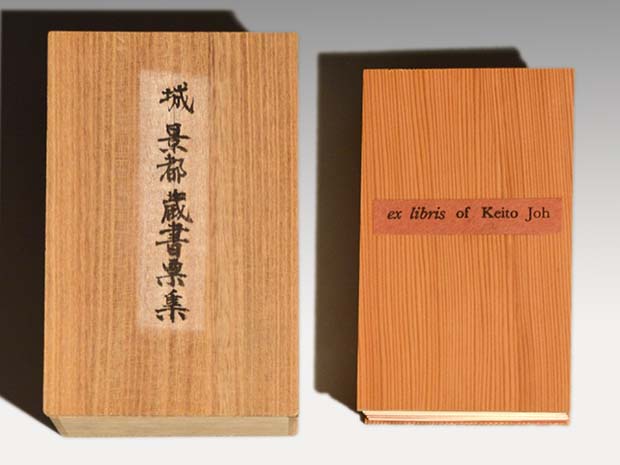 城 景都 蔵書票集
ex libris of Keito Joh